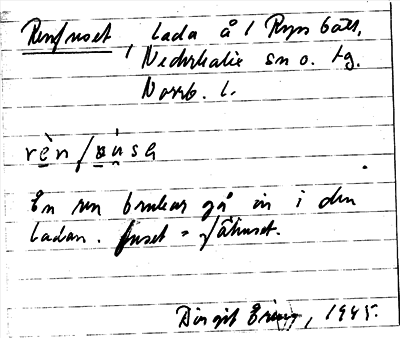 Renfuset, lada å 1 Ryss båts,
Nederkalix sn o. tg.
Norrb. l.
rèn fu̇sə
En ren brukar gå in i den
ladan. fuset = fähuset.
Birgit Ering, 1945.